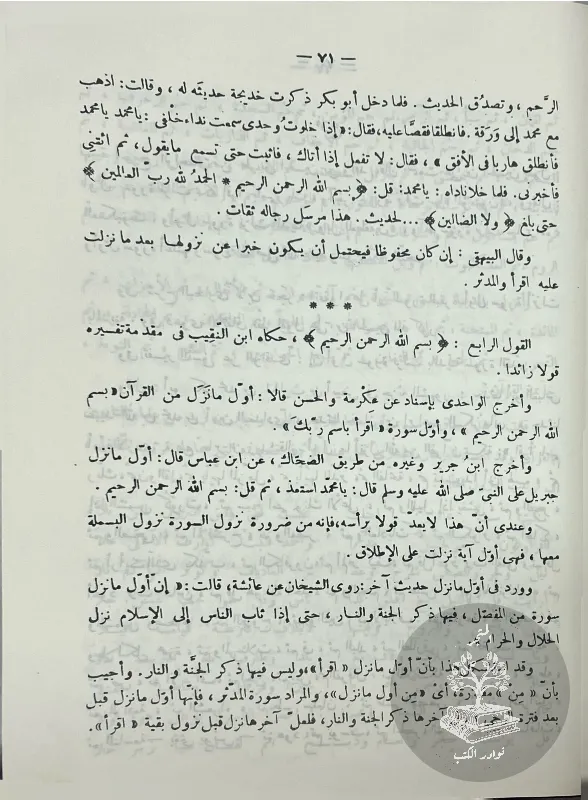 — ٧١ —
الرَّحم ، وتصدُق الحديث . فلما دخل أبو بكر ذكرت خديجة حديثَه له ، وقالت: اذهب
مع محمد إلى وَرَقة . فانطلقا فقصَّا عليه، فقال: «إذا خلوتُ وحدى سمعت نداء خلْفى : يامحمد يامحمد
فأنطلق هاربا فى الأفق » ، فقال: لا تفعل إذا أتاك ، فاثبت حتى تسمع مايقول، ثم ائتنى
فأخبرنى. فلما خلا ناداه : يامحمد: قل: ﴿ بسم الله الرحمن الرحيم * الحمدُ لله ربّ العالمين ﴾
حتى بلغ ﴿ ولا الضالين﴾ ...لحديث . هذا مرسَل رجاله ثقات .
وقال البيهقى : إن كان محفوظا فيحتمل أن يكون خبرا عن نزولها بعد ما نزلت
عليه اقرأ والمدثر .
* * *
القول الرابع : ﴿ بسم الله الرحمن الرحيم ﴾ ، حكاه ابن النَّقِيب فى مقدّمة تفسيره
قولا زائدا .
وأخرج الواحدى بإسناد عن عِكْرمة والحسن قالا : أوّل مانَزَل من القرآن «بسم
الله الرحمن الرحيم » ، وأوّل سورة « اقرأ باسم ربّك » .
وأخرج ابنُ جرير وغيره من طريق الضحّاك، عن ابن عباس قال: أوّل مانزل
جبريل على النبىّ صلى الله عليه وسلم قال: يامحمّد استعذ ، ثم قل: بسم الله الرحمن الرحيم .
وعندى أنّ هذا لايعدّ قولا برأسه، فإنه من ضرورة نزول السورة نزول البسملة
معها ، فهى أوّل آية نزلت على الإطلاق .
وورد فى أوّل مانزل حديث آخر: روى الشيخان عن عائشة، قالت : « إن أوّل مانزل
سورة من المفصّل ، فيها ذكر الجنة والنار ، حتى إذا ثاب الناس إلى الإسلام نزل
الحلال والحرام
وقد هذا بأنّ أوّل مانزل « اقرأ »، وليس فيها ذكر الجنَّة والنار. وأجيب
بأنّ « مِنْ » مقدّرة، أىْ «مِن أول مانزل»، والمراد سورة المدّثر ، فإنّها أوّل مانزل قبل
بعد فترة آخرها ذكر الجنة والنار، فلعلّ آخرها نزل قبل نزول بقية « اقرأ ».
متجر
نوادر الكتب